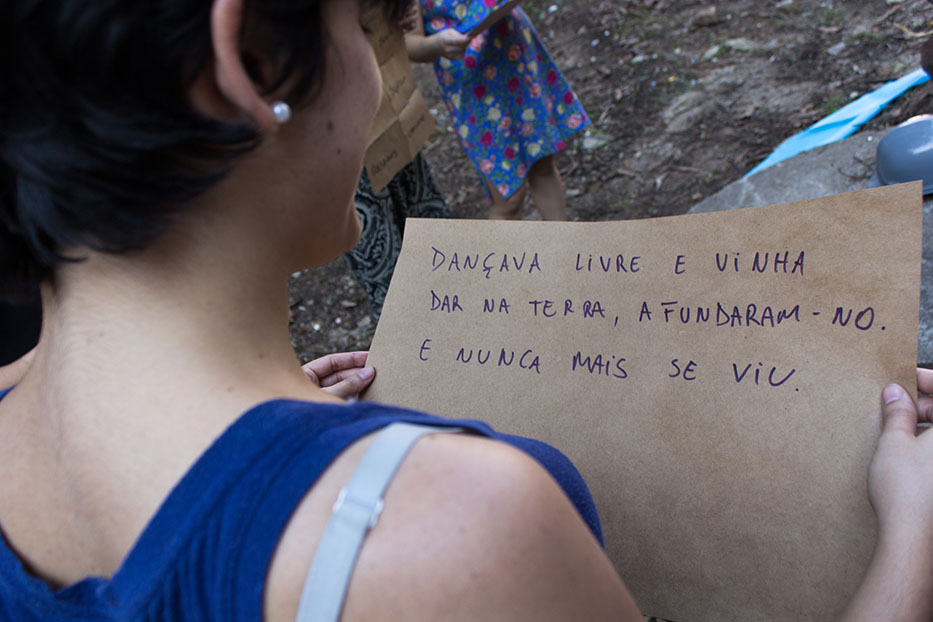 DANÇAVA LIVRE E VINHA
DAR NA TERRA, AFUNDARAM-NO.
E NUNCA MAIS SE VIU.